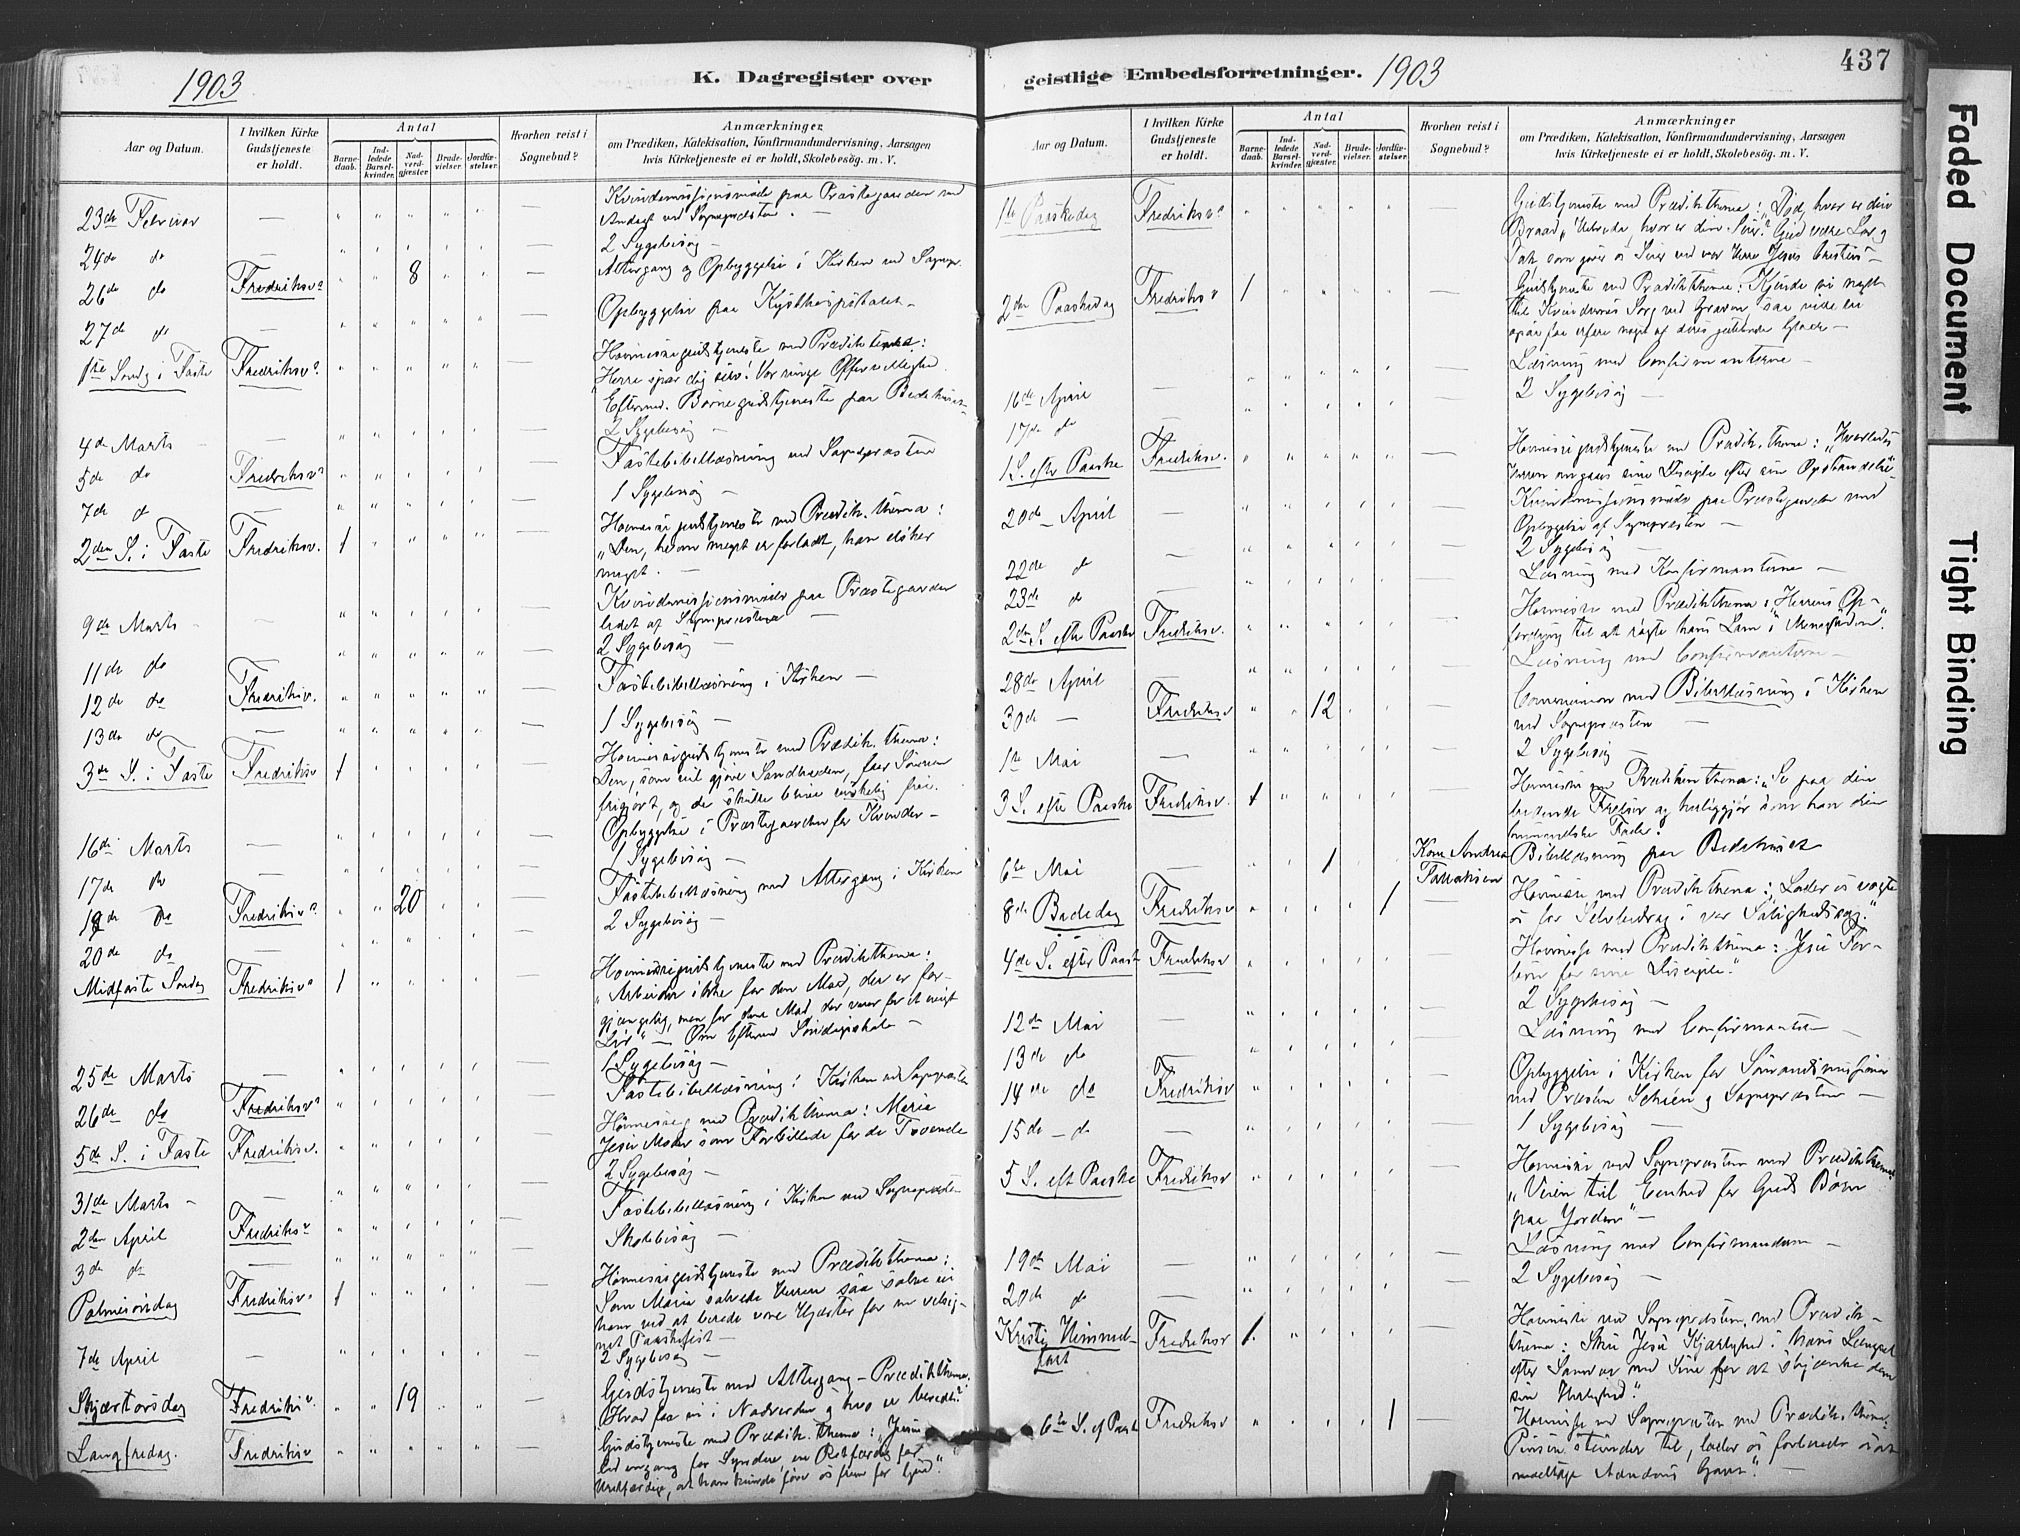 1903
K. Dagregister over
Aar og Datum.
I hvilken Kirke Gudstjeneste er holdt.
Antal
Barne-daab.
Ind-ledede Barsel-kvinder.
Nad-verd-gjæster
Brude-vielser.
Jordfæ-stelser.
Hvorhen reist i Sognebud?
Anmærkninger
om Prædiken, Katekisation, Konfirmandundervisning, Aarsagen
hvis Kirketjeneste ei er holdt, Skolebesøg. m. V.
23de Februar
Kvindemissionsmøde paa Præstegaarden med
Andagt ved Sognepræsten. —
24de do
2 Sygebesøg —
26de do Fredriksv. 8 Altergang og Opbyggelse i Kirken ved Sognepr.
27de do
Opbyggelse paa Kysthospitalet —
1ste Søndg i Faste Fredriksv.
Høimessegudstjeneste med Prædiktema:
Herre spar dig selv! Vor ringe Offervillighed
Eftermd. Børnegudstjeneste paa Bedehuset
4de Marts
2 Sygebesøg —
5de do Fredriksv. Fastebibellæsning ved Sognepræsten
7de do
1 Sygebesøg —
2den S. i Faste Fredriksv. 1
Høimessegudstjeneste med Prædik. thema:
"Den, hvem meget er forladt, han elsker
meget. —
9de Marts
Kvindemissionsmøde paa Præstegaarden
ledet af Sognepræsten —
11de do
2 Sygebesøg —
12de do Fredriksv. Fastebibellæsning i Kirken —
13de do
1 Sygebesøg —
3de S. i Faste Fredriksv 1
Høimessegudstjeneste med Prædik. thema:
Den, som vil gjøre Sandheden, faar Sønnen
frigjort, og de skulle blive virkelig frie.
16de Marts
Opbyggelse i Præstegaarden for Kvinder —
17de do
1 Sygebesøg —
19de do Fredriksv. 20 Fastebibellæsning med Altergang i Kirken
20de do
2 Sygebesøg —
Midfaste Søndag Fredriksv. 1
Høimessegudstjeneste med Prædikthema:
"Arbeider ikke for den Mad, der er for-
gjængelig, men for den Mad, der varer for et evigt
Liv" — Om Efterm Søndagsskole —
25de Marts
1 Sygebesøg —
26de do Fredriksv. Fastebibellæsning i Kirken ved Sognepræsten
5de S. i Faste Fredriksv.
Høimesse med Prædikthema: Maria
Jesu Moder som Forbillede for de Troende
31de Marts —
2 Sygebesøg —
2den April Fredriksv. Fastebibellæsning i Kirken ved Sognepræsten
3de do
Skolebesøg —
Palmesøndag Fredriksv. 1
Høimessegudstjeneste med Prædikthema:
Som Maria salvede Herren saa salve vi
ham ved at berede vore Hjerter for en velsig-
net Paaskefest —
7de April
2 Sygebesøg —
Skjærtorsdag Fredriksv. 19
Gudstjeneste med Altergang — Prædikthema:
Hvad faa vi i Nadverden og hvo er beredt?
Langfredag. Fredriksv
Gudstjeneste med Prædik. thema: "Jesus
led engang for Syndere, en Retfærdig for
Uretfærdige, at han kunde føre os frem for Gud".
geistlige Embedsforretninger. 1903
437
Aar og Datum.
I hvilken Kirke Gudstjeneste er holdt.
Antal
Barne-daab.
Ind-ledede Barsel-kvinder.
Nad-verd-gjæster
Brude-vielser.
Jordfæ-stelser.
Hvorhen reist i Sognebud?
Anmærkninger
om Prædiken, Katekisation, Konfirmandundervisning, Aarsagen
hvis Kirketjeneste ei er holdt, Skolebesøg. m. V.
1ste Paaskedag Fredriksv.
Gudstjeneste med Prædikthema: "Død, hvor er din
Braad, Helvede, hvor er din Seier? Gud være Lov og
Tak som giver os Seier ved vor Herre Jesus Cristus" —
2den Paaskedag Fredriksv 1
Gudstjeneste med Prædikthema: Kjende vi noget
til Kvindernes Sorg ved Graven, saa vide vi
ogsaa at efare noget af deres jublende Glæde —
Læsning med Confirmanterne —
16de April
2 Sygebesøg —
17de do
1 S. efter Paaske Fredriksv.
Høimessegudstjeneste med Prædik. thema: "Hvorledes
Herren omgaaes sine Disciple efter sin Opstandelse"
20de April
Kvindemissionsmøde paa Præstegaarden med
Opbyggelse af Sognepræsten —
22de do
2 Sygebesøg —
23de do
Læsning med Konfirmanterne —
2den S. efter Paaske Fredriksv.
Høimesse med Prædikthema: Herrens Op-
fordring til at røgte hans Lam i Menigheden."
28de April
Læsning med Confirmanterne —
30de — Fredriksv 12
Communion med Bibellæsning i Kirken
ved Sognepræsten —
1ste Mai
2 Sygebesøg —
3 S. efter Paaske Fredriksv. 1
Høimesse med Prædikenthema: "Se paa din
Frelser og
himmelske Fader.
6te Mai 1 Andrea Bibellæsning paa Bedehuset
8de Bededag Fredriksv 1
Høimesse med Prædikthema: "Lader os vogte
os for Selvbedrag i vor Salighedssag."
4de S. efter Paaske Fredriksv
Høimesse med Prædikthema: Jesu For-
bøn for sine Disciple."
12de Mai
2 Sygebesøg —
13de do
Læsning med Confirmanterne —
14de do Fredriksv
Opbyggelse i Kirken for Sømandsmissionen
ved Præsten og Sognepræsten —
15de — do
1 Sygebesøg —
5 S. eft Paaske Fredriksv
Høimesse ved Sognepræsten med Prædikthema:
"Veien til Eenhed for Guds Børn
paa Jorden" —
19de Mai
Læsning med Confirmanderne —
20de do
2 Sygebesøg —
Kristi Himmel-
fart
Fredriksv 1.
Høimesse ved Sognepræsten, med Prædik-
thema: Sku Jesu Kjærlighed i hans Længsel
efter Samvær med Sine for at skjænke dem
sin Herlighed".
6te S. ef Paask Fredriksv 1
Høimesse ved Sognepræsten med Prædik. thema:
Pinsen stunder til, lader os forberede os at
modtage Aandens Gaver". —
Faded Document
Tight Binding